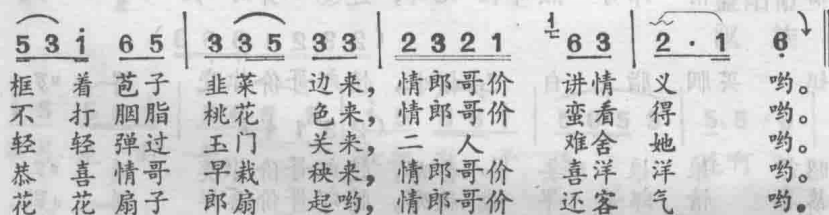 5 3 i 6 5 | 3 3 5 3 3 | 2 3 2 1 6 3 | 2 · 1 6 ‖
框 着 苞子 韭菜 边来，情郎哥价 讲情 义 哟。
不 打 胭脂 桃花 色来，情郎哥价 蛮看 得 哟。
轻 轻 弹过 玉门 关来，二 人 难舍 她 哟。
恭 喜 情哥 早栽 秧来，情郎哥价 喜洋 洋 哟。
花 花 扇子 郎扇 起哟，情郎哥价 还客 气 哟。